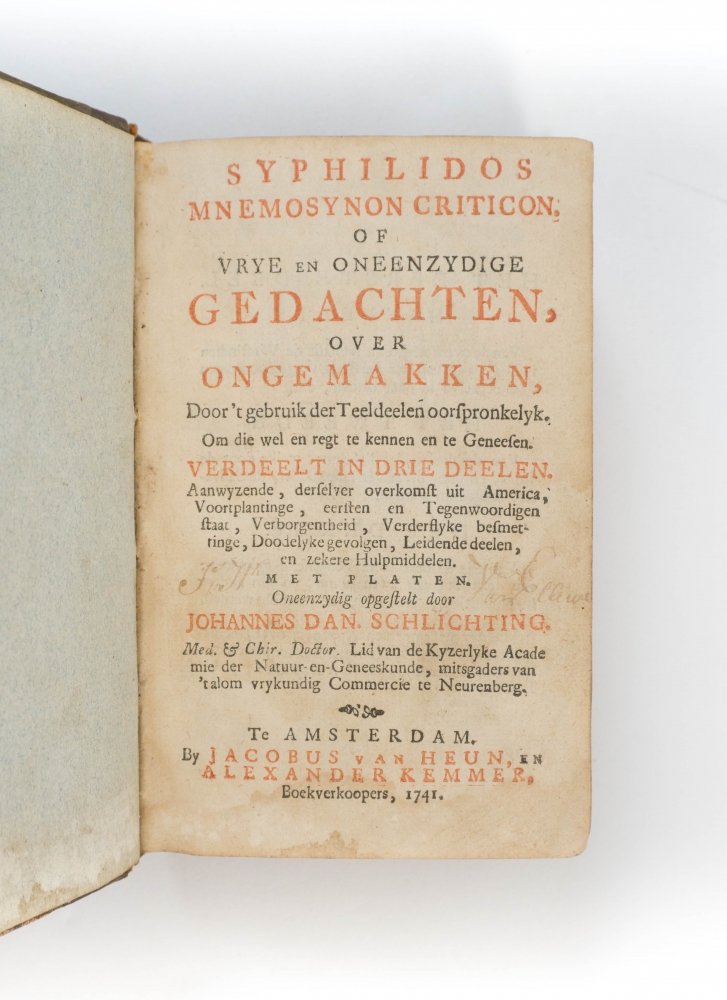 SYPHILIDOS
MNEMOSYNON CRITICON.
OF
VRYE EN ONEENZYDIGE
GEDACHTEN,
OVER
ONGEMAKKEN,
Door 't gebruik der Teeldeelen̄ oorſpronkelyk.
Om die wel en regt te kennen en te Geneeſen.
VERDEELT IN DRIE DEELEN.
Aanwyzende, derſelver overkomſt uit America,
Voortplantinge, eerſten en Tegenwoordigen
ſtaat, Verborgentheid, Verderflyke beſmet-
tinge, Doodelyke gevolgen, Leidende deelen,
en zekere Hulpmiddelen.
MET PLATEN.
Oneenzydig opgeſtelt door
JOHANNES DAN. SCHLICHTING.
Med. & Chir. Doctor. Lid van de Kyzerlyke Acade
mie der Natuur-en-Geneeskunde, mitsgaders van
't alom vrykundig Commercie te Neurenberg.
Te AMSTERDAM.
By JACOBUS VAN HEUN, EN
ALEXANDER KEMMER.
Boekverkoopers, 1741.